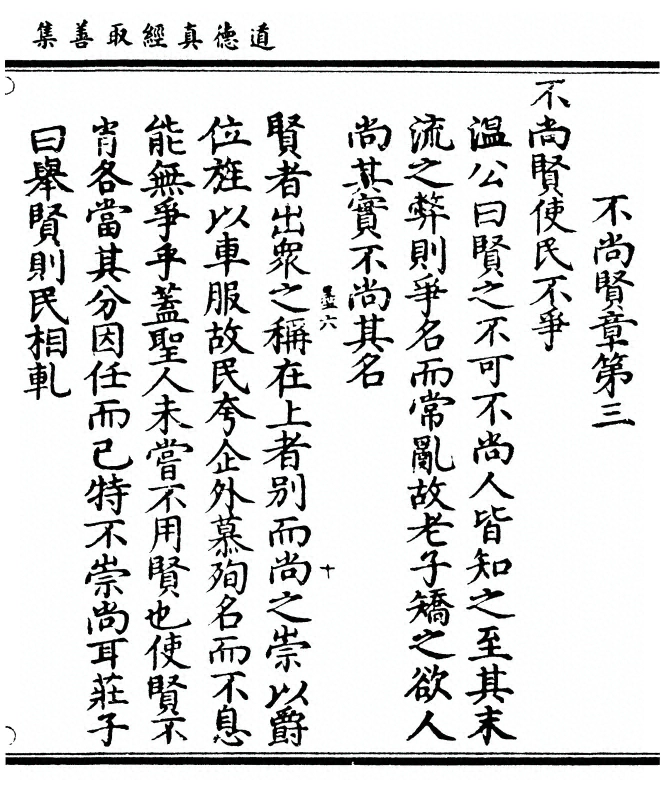 道德真經取善集
不尚賢章第三
不尚賢使民不爭
溫公曰賢之不可不尚人皆知之至其末
流之弊則爭名而常亂故老子矯之欲人
尚其實不尚其名
墨六
十
賢者出衆之稱在上者別而尚之崇以爵
位旌以車服故民夸企外慕殉名而不息
能無爭乎蓋聖人未嘗不用賢也使賢不
肖各當其分因任而已特不崇尚耳莊子
曰舉賢則民相軋